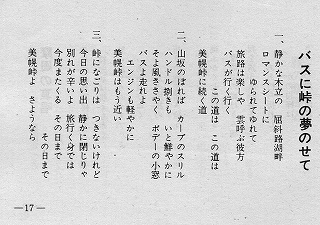 バスに峠の夢のせて
一、静かな木立の 屈斜路湖畔
ロマンスシートに
ゆられてゆれて
旅路は楽しや 雲呼ぶ彼方
バスが行く行く
この道は この道は
美幌峠に続く道
二、山坂のぼれば カーブのスリル
ハンドル捌きも いと鮮やかに
そよ風ささやく ボデーの小窓
バスよ走れよ
エンジンも軽やかに
美幌峠はもう近い
三、峠になごりは つきないけれど
今日の思い出 静かに閉じりゃ
別れが辛いよ 旅行く身では
今度またくる その日まで
その日まで
美幌峠よ さようなら
—17—